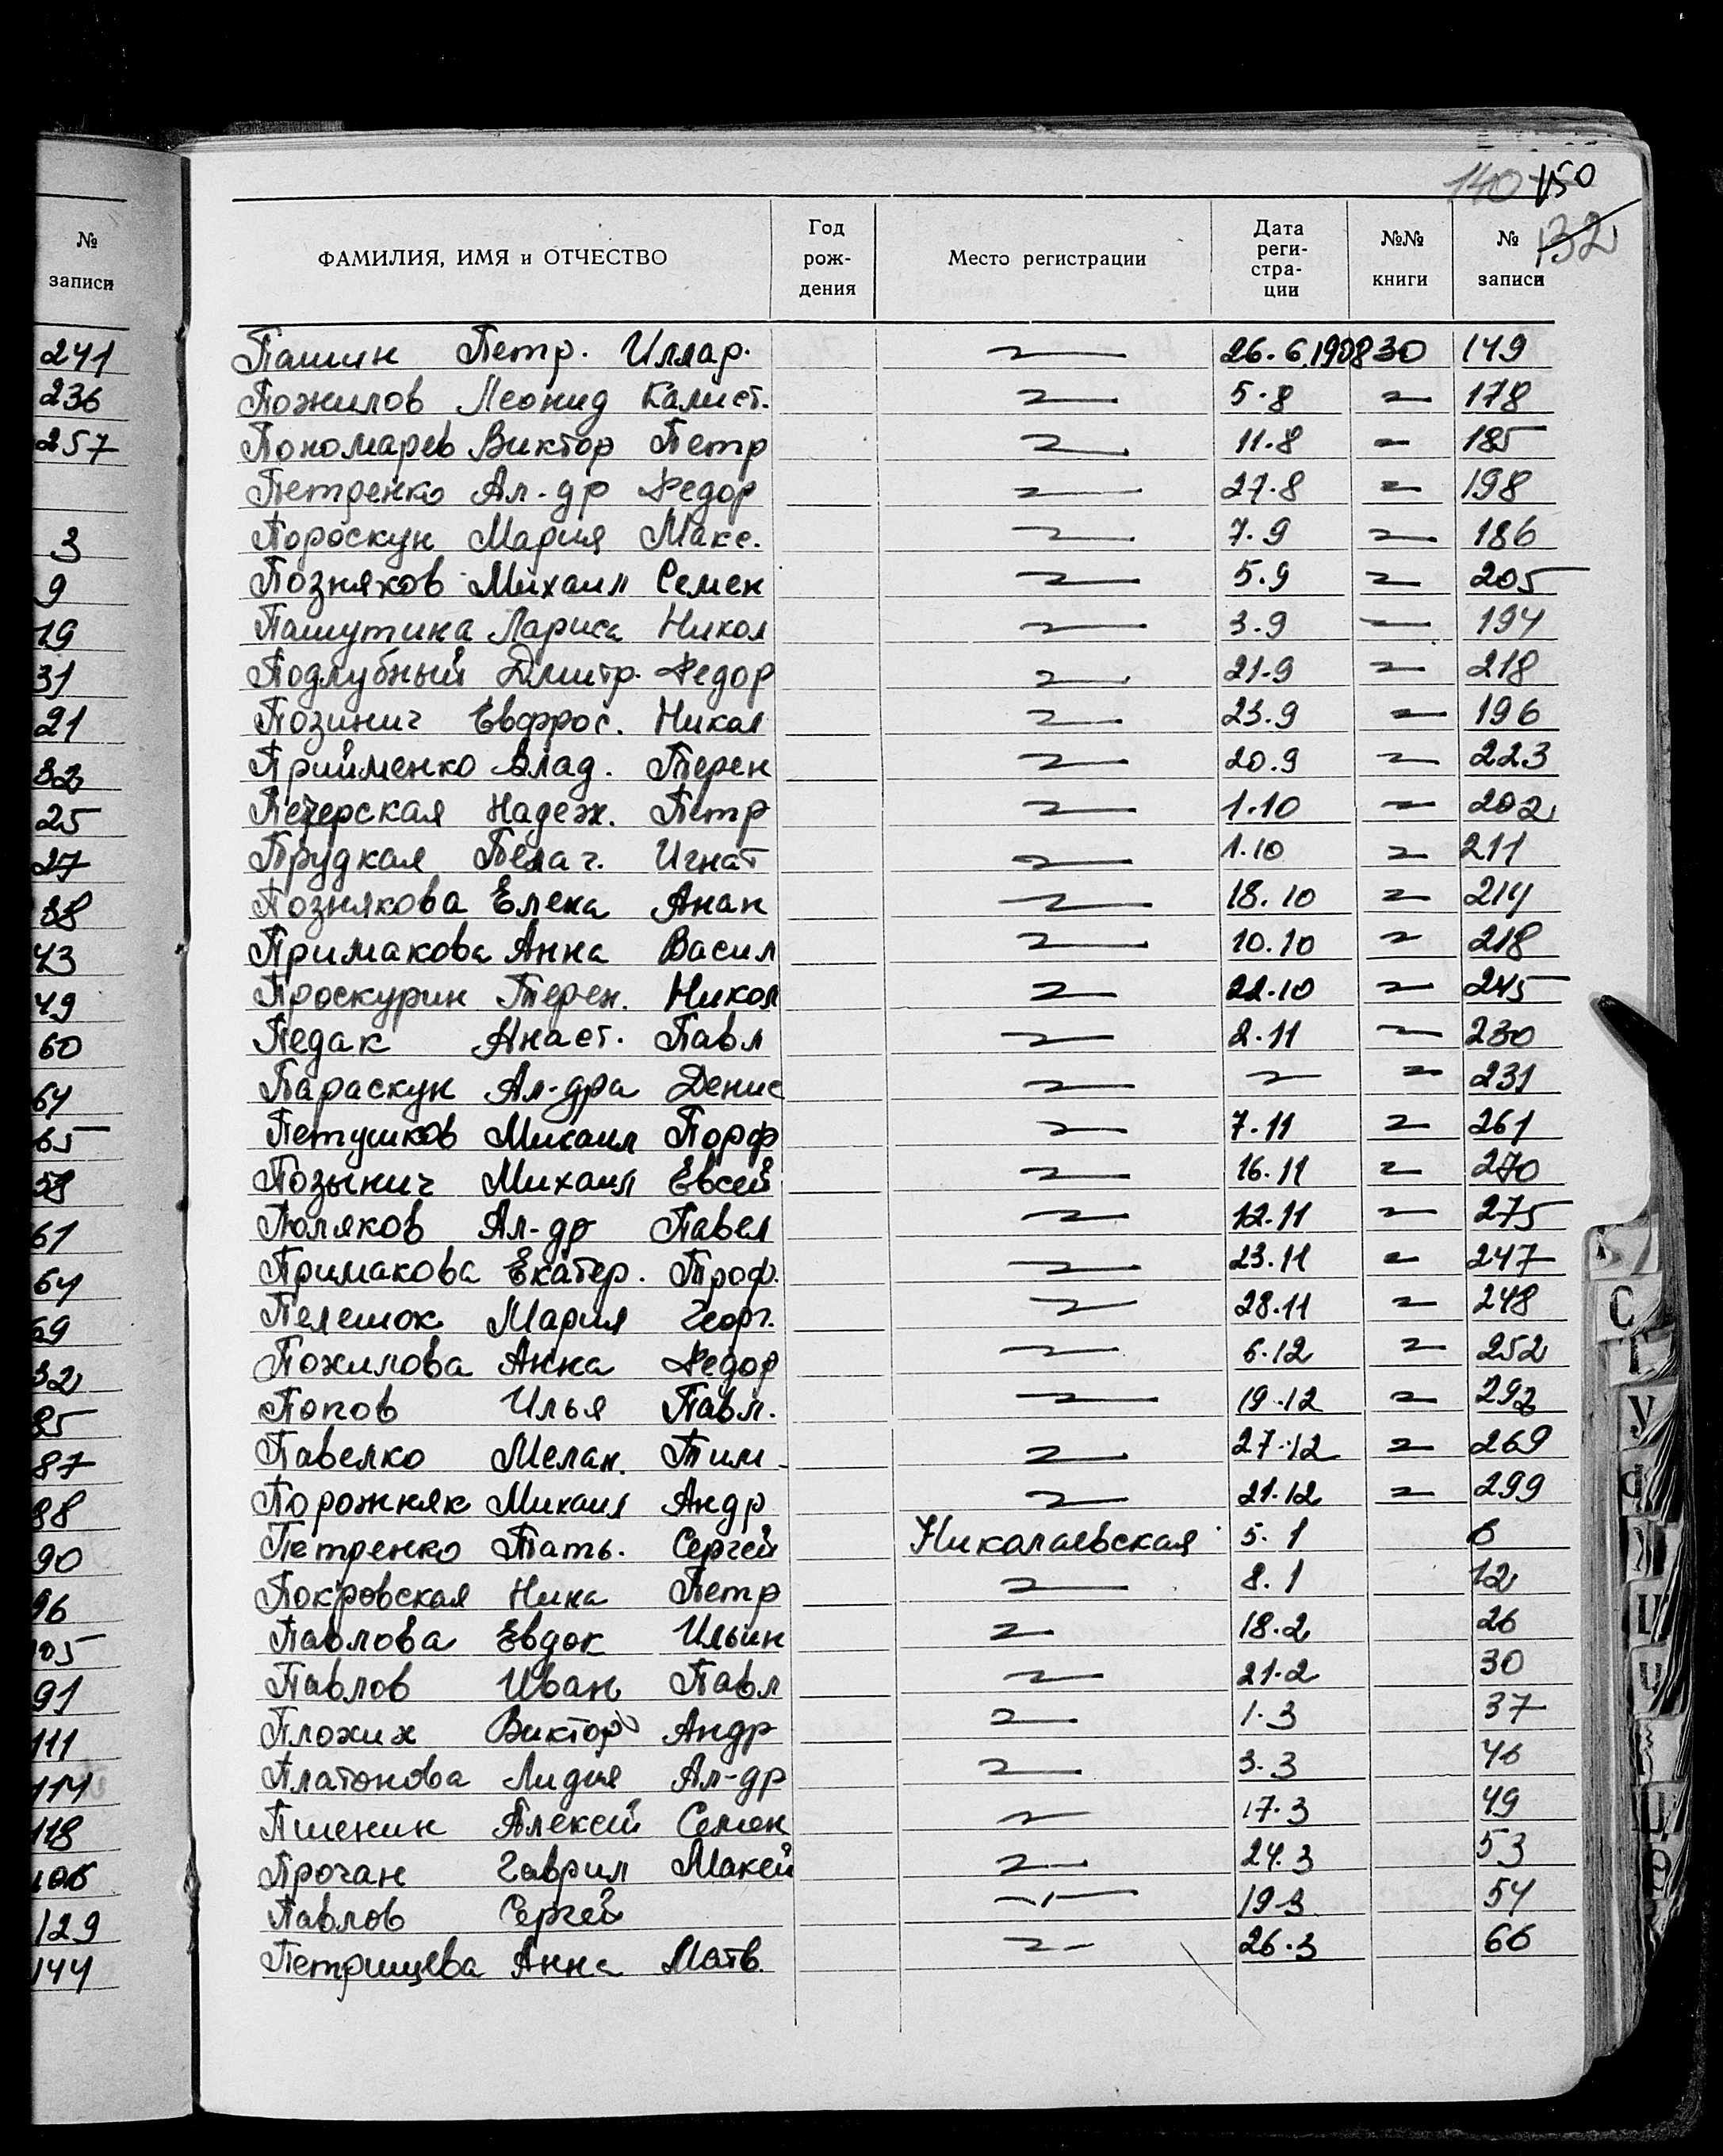 140 150
132
№ записи
ФАМИЛИЯ, ИМЯ и ОТЧЕСТВО Год рождения Место регистрации Дата регистрации №№ книги № записи
241 Пашин Петр. Иллар. 26.6.1908 30 149
236 Пожилов Леонид Калист. 5.8 178
257 Пономарев Виктор Петр 11.8 185
Петренко Ал-др Федор 27.8 198
3 Пороскун Мария Макс. 7.9 186
9 Позняков Михаил Семен 5.9 205
19 Пашутина Лариса Никол 3.9 194
31 Подлубный Дмитр. Федор 21.9 218
21 Позинич Евфрос. Никол 23.9 196
32 Прийменко Влад. Терен 20.9 223
25 Печерская Надеж. Петр 1.10 202
27 Прудкая Пелаг. Игнат 1.10 211
38 Познякова Елена Анан 18.10 214
43 Примакова Анна Васил 10.10 218
49 Проскурин Терен. Никол 22.10 245
60 Педак Анаст. Павл 2.11 230
64 Параскун Ал-дра Денис 231
65 Петушков Михаил Порф 7.11 261
58 Позынич Михаил Евсей 16.11 270
61 Поляков Ал-др Павел 12.11 275
64 Примакова Екатер. Троф. 23.11 247
69 Пелешок Мария Георг. 28.11 248
32 Пожилова Анна Федор 6.12 252
85 Попов Илья Павл. 19.12 292
87 Павелко Мелан. Тим 27.12 269
88 Порожняк Михаил Андр 21.12 299
90 Петренко Тать. Сергей Николаевская 5.1 6
96 Покровская Нина Петр 8.1 12
105 Павлова Евдок Ильин 18.2 26
91 Павлов Иван Павл 21.2 30
111 Плохих Виктор Андр 1.3 37
114 Платонова Лидия Ал-др 3.3 46
118 Пшенин Алексей Семен 17.3 49
106 Прочан Гаврил Макей 24.3 53
129 Павлов Сергей 19.3 54
144 Петрищева Анна Матв. 26.3 66
С
Т
У